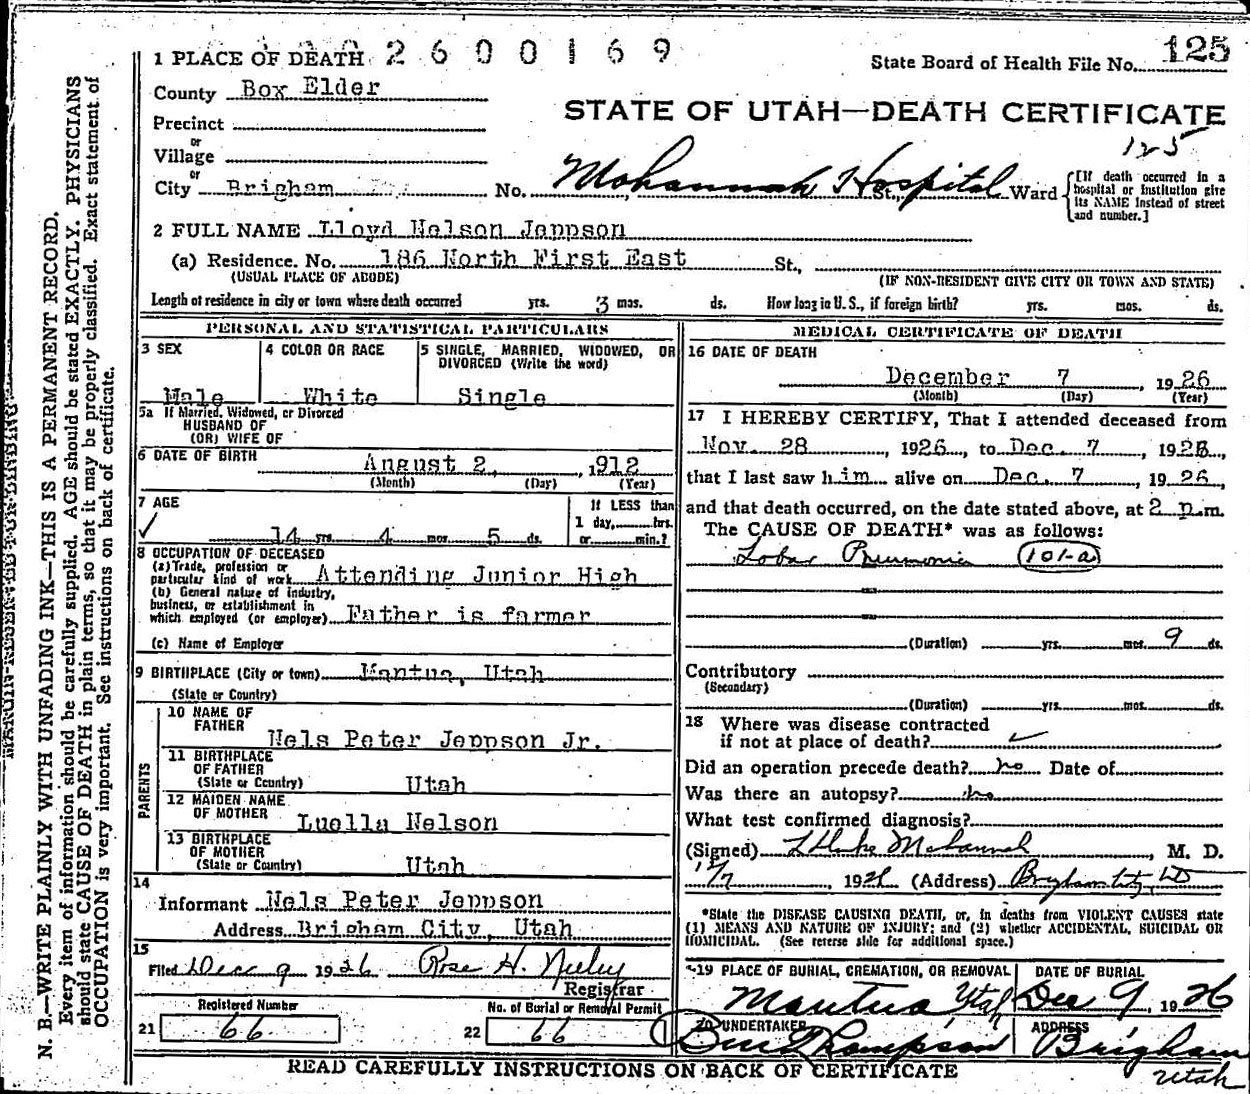 1 PLACE OF DEATH 2 6 0 0 1 6 9
State Board of Health File No. 125
County Box Elder
STATE OF UTAH—DEATH CERTIFICATE
125
Precinct
or
Village
or
City Brigham No. Hospital St., Ward
[If death occurred in a
hospital or institution give
its NAME instead of street
and number.]
2 FULL NAME Lloyd Nelson Jeppson
(a) Residence. No. 186 North First East St.,
(USUAL PLACE OF ABODE) (IF NON-RESIDENT GIVE CITY OR TOWN AND STATE)
Length of residence in city or town where death occurred yrs. 3 mos. ds. How long in U. S., if foreign birth? yrs. mos. ds.
PERSONAL AND STATISTICAL PARTICULARS
3 SEX
Male
4 COLOR OR RACE
White
5 SINGLE, MARRIED, WIDOWED, OR
DIVORCED (Write the word)
Single
5a If Married, Widowed, or Divorced
HUSBAND OF
(OR) WIFE OF
6 DATE OF BIRTH August 2, 1912
(Month) (Day) (Year)
7 AGE
14 yrs. 4 mos. 5 ds.
If LESS than
1 day, hrs.
or min.?
8 OCCUPATION OF DECEASED
(a) Trade, profession or
particular kind of work Attending Junior High
(b) General nature of industry,
business, or establishment in
which employed (or employer) Father is farmer
(c) Name of Employer
9 BIRTHPLACE (City or town) Mantua, Utah
(State or Country)
PARENTS
10 NAME OF
FATHER
Nels Peter Jeppson Jr.
11 BIRTHPLACE
OF FATHER
(State or Country) Utah
12 MAIDEN NAME
OF MOTHER Luella Nelson
13 BIRTHPLACE
OF MOTHER
(State or Country) Utah
14
Informant Nels Peter Jeppson
Address Brigham City, Utah
15
Filed Dec 9 1926 Rose H. Neeley
Registrar
Registered Number
21 66
No. of Burial or Removal Permit
22 66
MEDICAL CERTIFICATE OF DEATH
16 DATE OF DEATH
December 7, 1926
(Month) (Day) (Year)
17 I HEREBY CERTIFY, That I attended deceased from
Nov. 28, 1926, to Dec. 7, 1926,
that I last saw him alive on Dec. 7, 1926,
and that death occurred, on the date stated above, at 2 p.m.
The CAUSE OF DEATH* was as follows:
Lobar Pneumonia 101-a
(Duration) yrs. mos. 9 ds.
Contributory
(Secondary)
(Duration) yrs. mos. ds.
18 Where was disease contracted
if not at place of death?
Did an operation precede death? no Date of
Was there an autopsy? no
What test confirmed diagnosis?
(Signed) , M. D.
12/7, 1926 (Address) Brigham City, Ut
*State the DISEASE CAUSING DEATH, or, in deaths from VIOLENT CAUSES state
(1) MEANS AND NATURE OF INJURY; and (2) whether ACCIDENTAL, SUICIDAL OR
HOMICIDAL. (See reverse side for additional space.)
19 PLACE OF BURIAL, CREMATION, OR REMOVAL
Mantua, Utah
DATE OF BURIAL
Dec 9, 1926
20 UNDERTAKER
Ben Thompson
ADDRESS
Brigham
Utah
READ CAREFULLY INSTRUCTIONS ON BACK OF CERTIFICATE
MARGIN RESERVED FOR BINDING
N. B.—WRITE PLAINLY WITH UNFADING INK—THIS IS A PERMANENT RECORD.
Every item of information should be carefully supplied. AGE should be stated EXACTLY. PHYSICIANS
should state CAUSE OF DEATH in plain terms, so that it may be properly classified. Exact statement of
OCCUPATION is very important. See instructions on back of certificate.